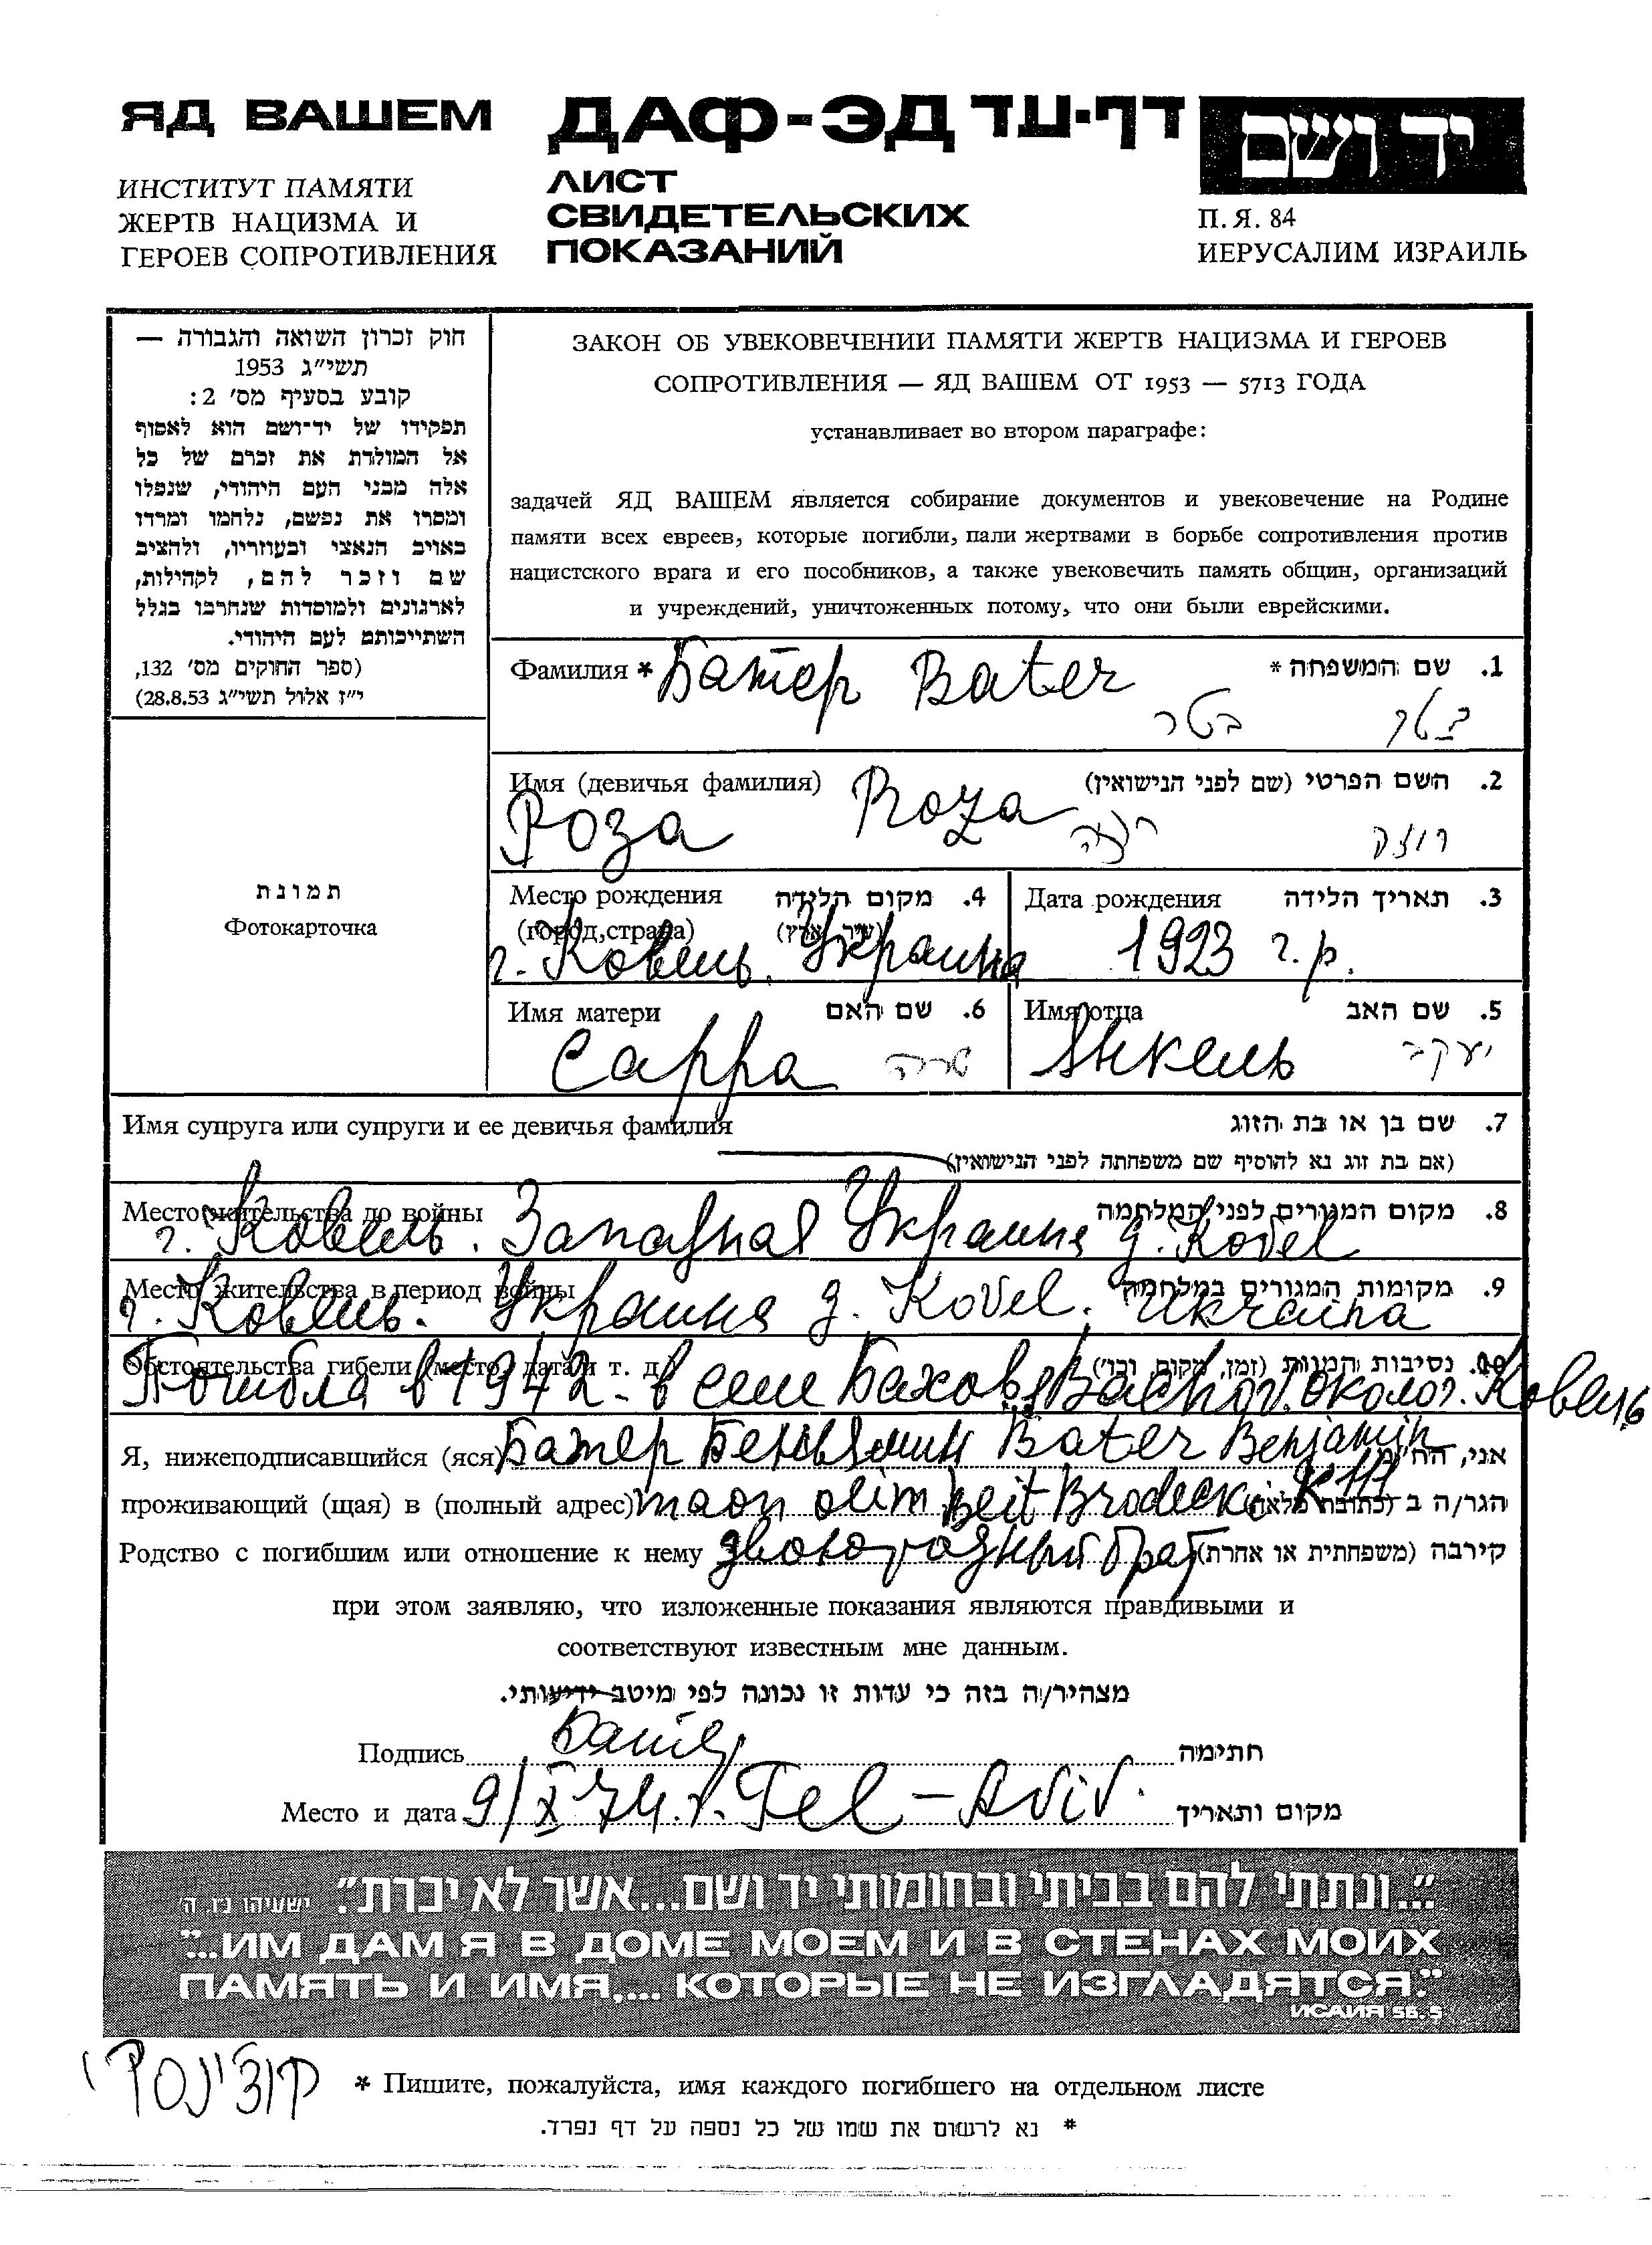 ЯД ВАШЕМ
ИНСТИТУТ ПАМЯТИ
ЖЕРТВ НАЦИЗМА И
ГЕРОЕВ СОПРОТИВЛЕНИЯ
ДАФ-ЭД דף-עד
ЛИСТ
СВИДЕТЕЛЬСКИХ
ПОКАЗАНИЙ
יד ושם
П. Я. 84
ИЕРУСАЛИМ ИЗРАИЛЬ
חוק זכרון השואה והגבורה —
תשי״ג 1953
קובע בסעיף מס׳ 2:
תפקידו של יד־ושם הוא לאסוף
אל המולדת את זכרם של כל
אלה מבני העם היהודי, שנפלו
ומסרו את נפשם, נלחמו ומרדו
באויב הנאצי ובעוזריו, ולהציב
שם וזכר להם, לקהילות,
לארגונים ולמוסדות שנחרבו בגלל
השתייכותם לעם היהודי.
(ספר החוקים מס׳ 132,
י״ז אלול תשי״ג 28.8.53)
ЗАКОН ОБ УВЕКОВЕЧЕНИИ ПАМЯТИ ЖЕРТВ НАЦИЗМА И ГЕРОЕВ
СОПРОТИВЛЕНИЯ — ЯД ВАШЕМ ОТ 1953 — 5713 ГОДА
устанавливает во втором параграфе:
задачей ЯД ВАШЕМ является собирание документов и увековечение на Родине
памяти всех евреев, которые погибли, пали жертвами в борьбе сопротивления против
нацистского врага и его пособников, а также увековечить память общин, организаций
и учреждений, уничтоженных потому, что они были еврейскими.
תמונת
Фотокарточка
Фамилия * Батер Bater 1. שם המשפחה *
בטר בטר
Имя (девичья фамилия) 2. השם הפרטי (שם לפני הנישואין)
Роза Roza רוזה רוזה
Место рождения 4. מקום הלידה
(город, страна) (עיר, ארץ)
г. Ковель. Украина
Дата рождения 3. תאריך הלידה
1923 г.р.
Имя матери 6. שם האם
Сарра שרה
Имя отца 5. שם האב
Янкель יעקב
Имя супруга или супруги и ее девичья фамилия 7. שם בן או בת הזוג
(אם בת זוג נא להוסיף שם משפחתה לפני הנישואין)
Место жительства до войны 8. מקום המגורים לפני המלחמה
г. Ковель. Западная Украина g. Kovel
Место жительства в период войны 9. מקומות המגורים במלחמה
г. Ковель. Украина g. Kovel. Ukraina
Обстоятельства гибели (место, дата и т. д.) 10. נסיבות המוות (זמן, מקום, וכו׳)
Погибла в 1942 - в селе Бахов Bachov. около г. Ковель
Я, нижеподписавшийся (яся) Батер Беньямин Bater Benjamin אני, הח״מ
проживающий (щая) в (полный адрес) maon olim Beit Brodecki K 111 הגר/ה ב (כתובת מלאה)
Родство с погибшим или отношение к нему двоюродный брат קירבה (משפחתית או אחרת)
при этом заявляю, что изложенные показания являются правдивыми и
соответствуют известным мне данным.
מצהיר/ה בזה כי עדות זו נכונה לפי מיטב ידיעותי.
Подпись Батер חתימה
Место и дата 9/X 74 г. Tel-Aviv. מקום ותאריך
״...ונתתי להם בביתי ובחומותי יד ושם...אשר לא יכרת״. ישעיהו נ״ו, ה׳
"...ИМ ДАМ Я В ДОМЕ МОЕМ И В СТЕНАХ МОИХ
ПАМЯТЬ И ИМЯ,... КОТОРЫЕ НЕ ИЗГЛАДЯТСЯ."
ИСАИЯ 56.5
* Пишите, пожалуйста, имя каждого погибшего на отдельном листе
* נא לרשום את שמו של כל נספה על דף נפרד.